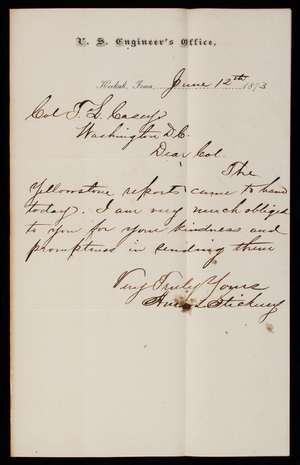 U. S. Engineer's Office,
Keokuk, Iowa, June 12th 1873
Col T. L. Casey
Washington D.C.
Dear Col.
The
Yellowstone reports came to hand
today. I am very much obliged
to you for your kindness and
promptness in sending them
Very Truly Yours
Amos Stickney